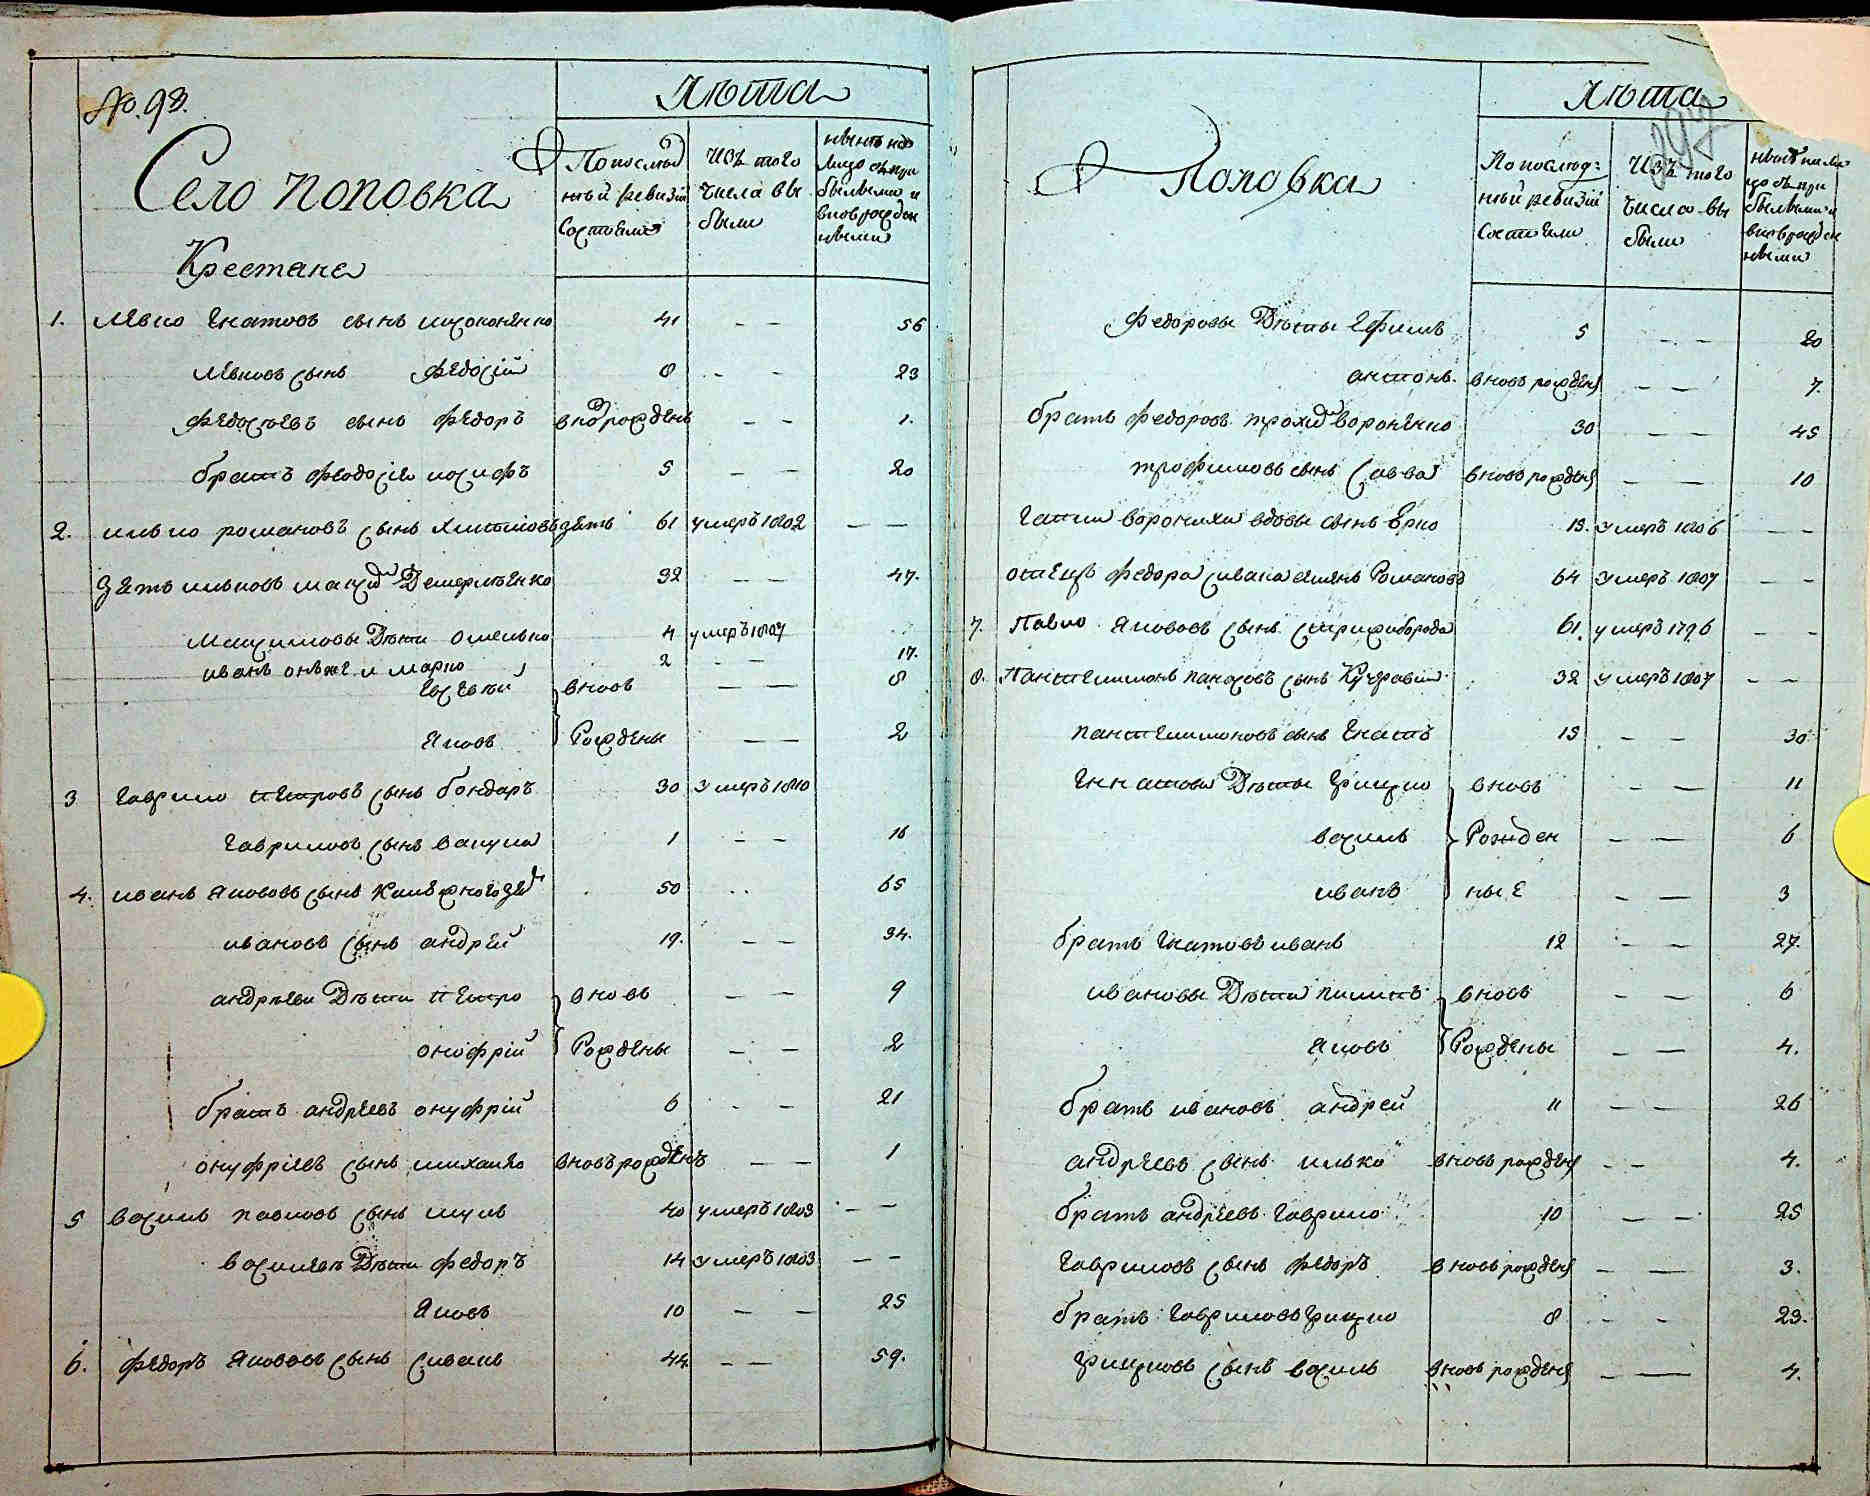 No. 93.
Лѣта
Село Поповка
По послѣд
ней ревизіи
состояло
изъ того
числа вы
были
нынѣ на
лицо съ при
былыми и
вновь рожден
ными
Крестяне
1. Левко Игнатовъ сынъ 41 — — 56
Левковъ сынъ Федосій 8 — — 23
Федосѣевъ сынъ Федоръ вновь рожденъ — — 1.
братъ Феодосія Иосифъ 5 — — 20
2. Илько Романовъ сынъ зять 61 умеръ 1802 — —
зять Ильковъ Максим 32 — — 47.
Максимовы Дѣти Омелько 4 умеръ 1807
Иванъ онъ же и Марко 2 — — 17.
Евсевій вновь — — 8
Яковъ рождены — — 2
3 Гаврило Петровъ сынъ бондаръ 30 умеръ 1810
Гавриловъ сынъ Вакула 1 — — 16
4. Иванъ Якововъ сынъ 50 .. 65
Ивановъ сынъ Андрей 19. — — 34.
Андрѣеви Дѣти Петро вновь — — 9
Онофрій рождены — — 2
братъ Андрѣевъ Онуфрій 6 — — 21
Онуфріевъ сынъ Михайло вновь рожденъ — — 1
5 Василь Павловъ сынъ Шуль 40 умеръ 1803 — —
Василеви Дѣти Федоръ 14 умеръ 1803 — —
Яковъ 10 — — 25
6. Федоръ Якововъ сынъ 44 — — 59.
Лѣта
297
Поповка
По послѣд-
ней ревизіи
состояли
изъ того
число вы
были
нынѣ на ли
цо съ при
былыми и
вновь рожден
ными
Федоровы Дѣты Ефимъ 5 — — 20
Антонъ. вновь рожденъ — — 7.
братъ Федоровъ Трохим Вороненко 30 — — 45
Трофимовъ сынъ Савва вновь рожденъ — — 10
Воронихи вдовы сынъ 13. умеръ 1806 — —
отецъ Федора Романовъ 64 умеръ 1807 — —
7. Павло Якововъ сынъ 61. умеръ 1796 — —
8. Пантелимонъ Панасовъ сынъ Кучеравий 32 умеръ 1807 — —
Пантелимоновъ сынъ Игнатъ 15 — — 30
Игнатови Дѣты Грицко вновь — — 11
Василь рожден — — 6
Иванъ ные — — 3
братъ Игнатовъ Иванъ 12 — — 27.
Ивановы Дѣти Пилипъ вновь — — 6
Яковъ рождены — — 4.
братъ Ивановъ Андрей 11 — — 26
Андрѣевъ сынъ Илько вновь рожденъ — — 4.
братъ Андрѣевъ Гаврило 10 — — 25
Гавриловъ сынъ Федоръ вновь рожденъ — — 3.
братъ Гавриловъ Грицко 8 — — 23.
Грицковъ сынъ Василь вновь рожденъ — — 4.